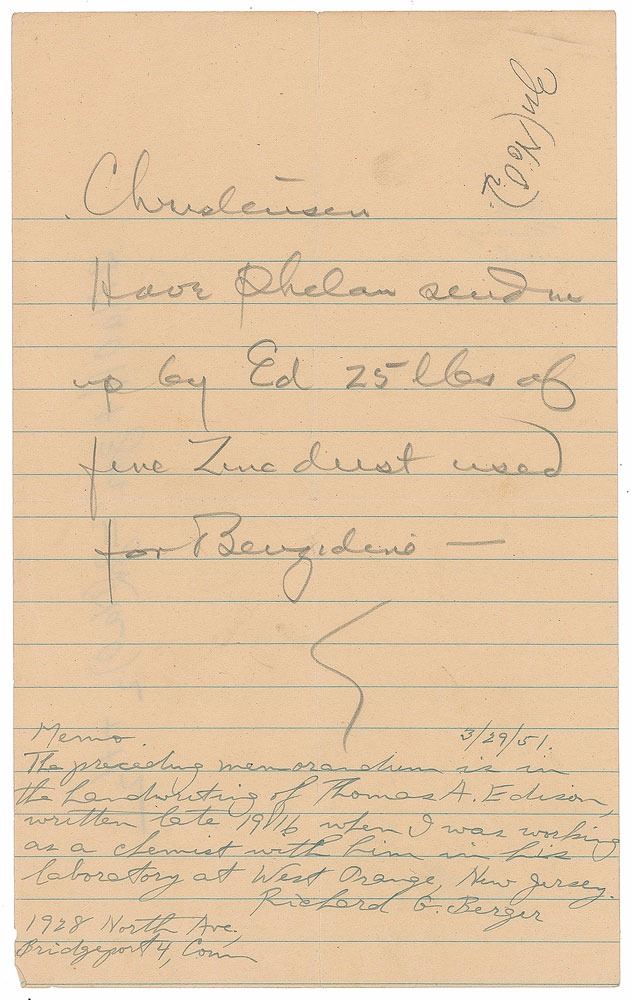 (No 2)
Christensen
Have Phelan send me
up by Ed 25 lbs of
fine Zinc dust used
for Benzidine —
Memo. 3/29/51.
The preceding memorandum is in
the handwriting of Thomas A. Edison,
written late 1916 when I was working
as a chemist with him in his
laboratory at West Orange, New Jersey.
Richard G. Berger
1928 North Ave.,
Bridgeport 4, Conn